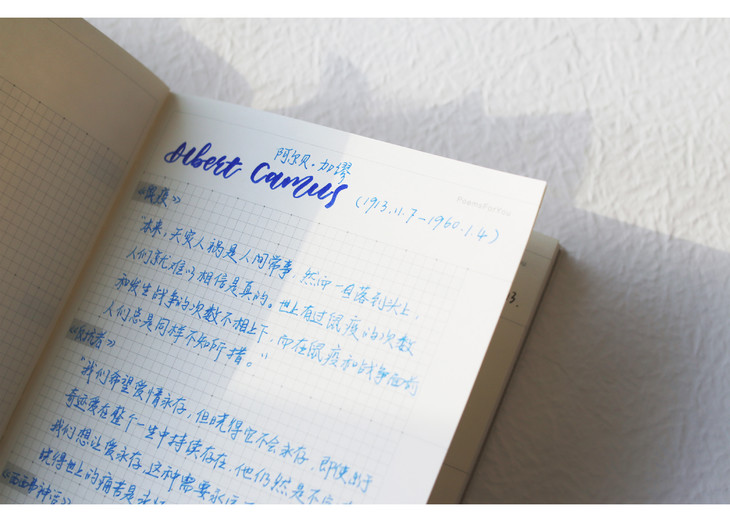 阿尔贝·加缪
Albert Camus
(1913.11.7-1960.1.4)
《鼠疫》
"本来,天灾人祸是人间常事,然而一旦落到头上,
人们就难以相信是真的。世上有过鼠疫的次数
和发生战争的次数不相上下,而在鼠疫和战争面前
人们总是同样不知所措。"
《反抗者》
"我们希望爱情永存,但晓得它不会永存,即使出于
奇迹爱在整个一生中持续存在,他仍然是不完
我们想让爱永存,这种需要永
晓得世上的痛苦是永
《西西弗神话》